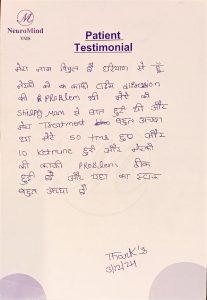 NeuroMind
TMS
Patient
Testimonial
मेरा नाम विपुल है हरियाणा से हूँ
मेरेको को काफी टाईम depression
की PROblem थी मेरे को
Shilpy Mam से बात हुई थी और
मेरा Treatment बहुत अच्छा
था मेरे 50 tms हुए और
10 Ketmine हुई और मेरेको
की काफी PROblem ठीक
हुई है और यहा का स्टाफ
बहुत अच्छा है
Thank's
3/12/24